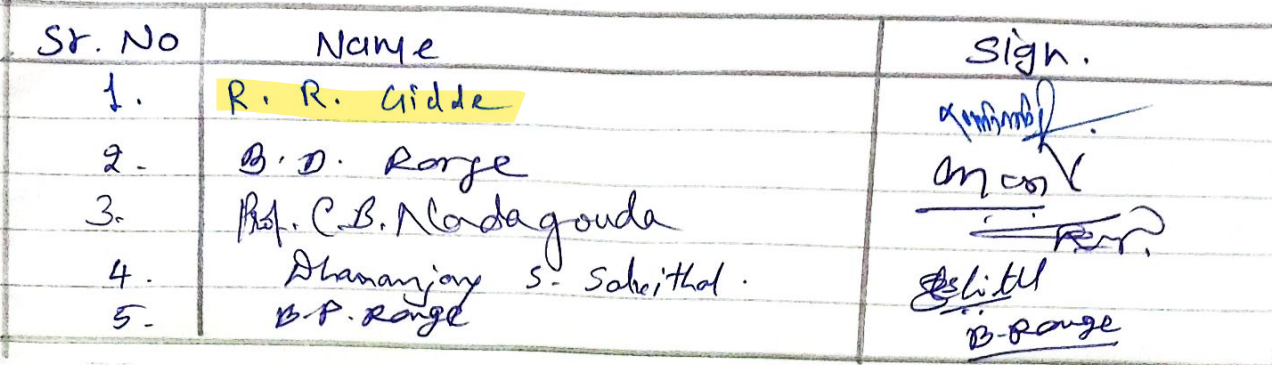 Sr. No Name Sign.
1. R. R. Gidde
2. B.D. Rorge
3. Prof. C.B. Nadagouda
4. Dhananjay S.
5. B.P. Ronge B-Rouge